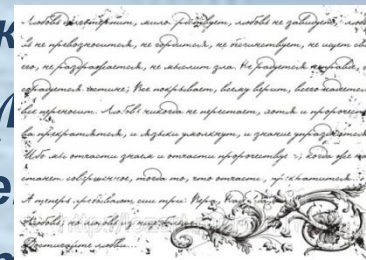 к
М
е
т
Любовь долготерпит, мило рдствует, любовь не завидует, любовь
не превозносится, не гордится, не бесчинствует, не ищет сво
его, не раздражается, не мыслит зла. Не радуется неправде, с
сорадуется истине; Все покрывает, всему верит, всего надеется
все переносит. Любовь никогда не перестает, хотя и пророчест
ва прекратятся, и языки умолкнут, и знание упразднится
Ибо мы отчасти знаем и отчасти пророчествуе когда же на
станет совершенное, тогда то, что отчасти, прекратится
А теперь пребывают сии три: Вера, Над
Любовь; но любовь из них
Достигайте любви